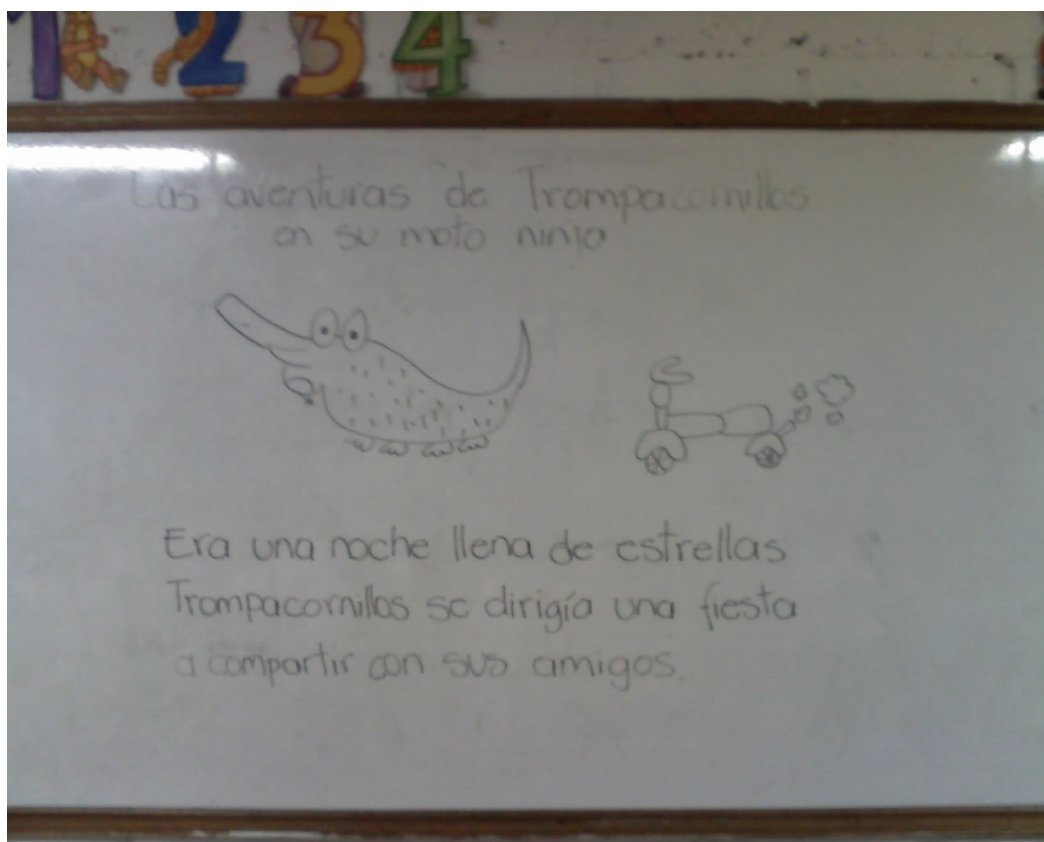 1 2 3 4
Las aventuras de Trompacornillos
en su moto ninja
Era una noche llena de estrellas
Trompacornillos se dirigía una fiesta
a compartir con sus amigos.